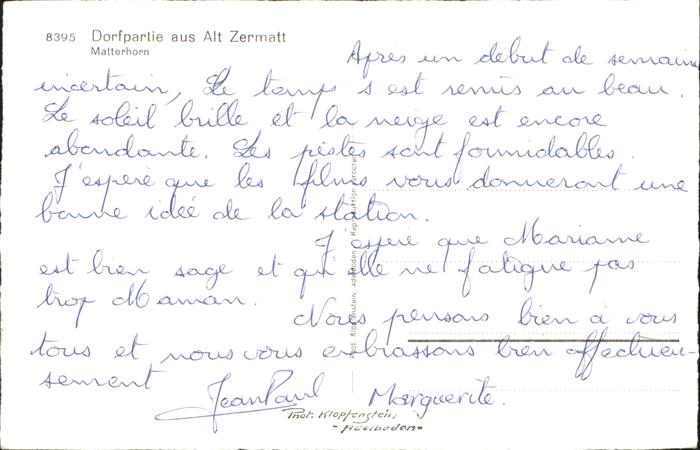 8395 Dorfpartie aus Alt Zermatt
Matterhorn
Après un début de semaine
incertain, Le temps s est remis au beau.
Le soleil brille et la neige est encore
abondante. Les pistes sont formidables.
J'espère que les films vous donneront une
bonne idée de la station.
J'espère que Marianne
est bien sage et qu'elle ne fatigue pas
trop Maman.
Nous pensons bien à vous
tous et nous vous embrassons bien affectueu-
sement
Jean Paul Marguerite.
Phot. Klopfenstein,
- Adelboden -
Phot. Klopfenstein, Adelboden, Reproduktion verboten